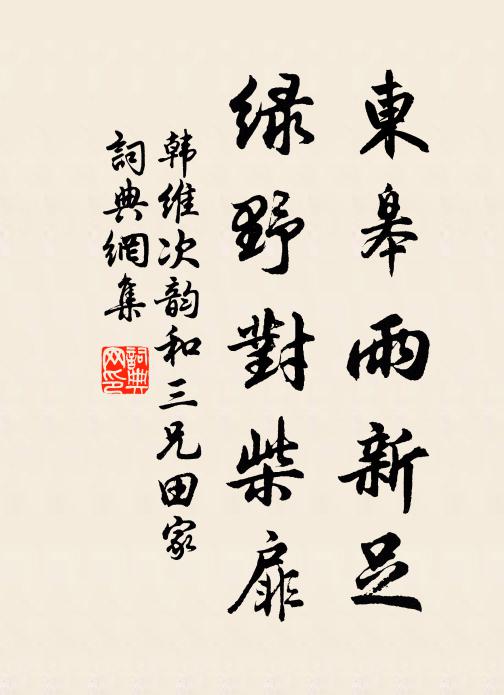 東皋雨新足
緑野對柴扉
韩维次韵和三兄田家
詞典網集
詞典网印